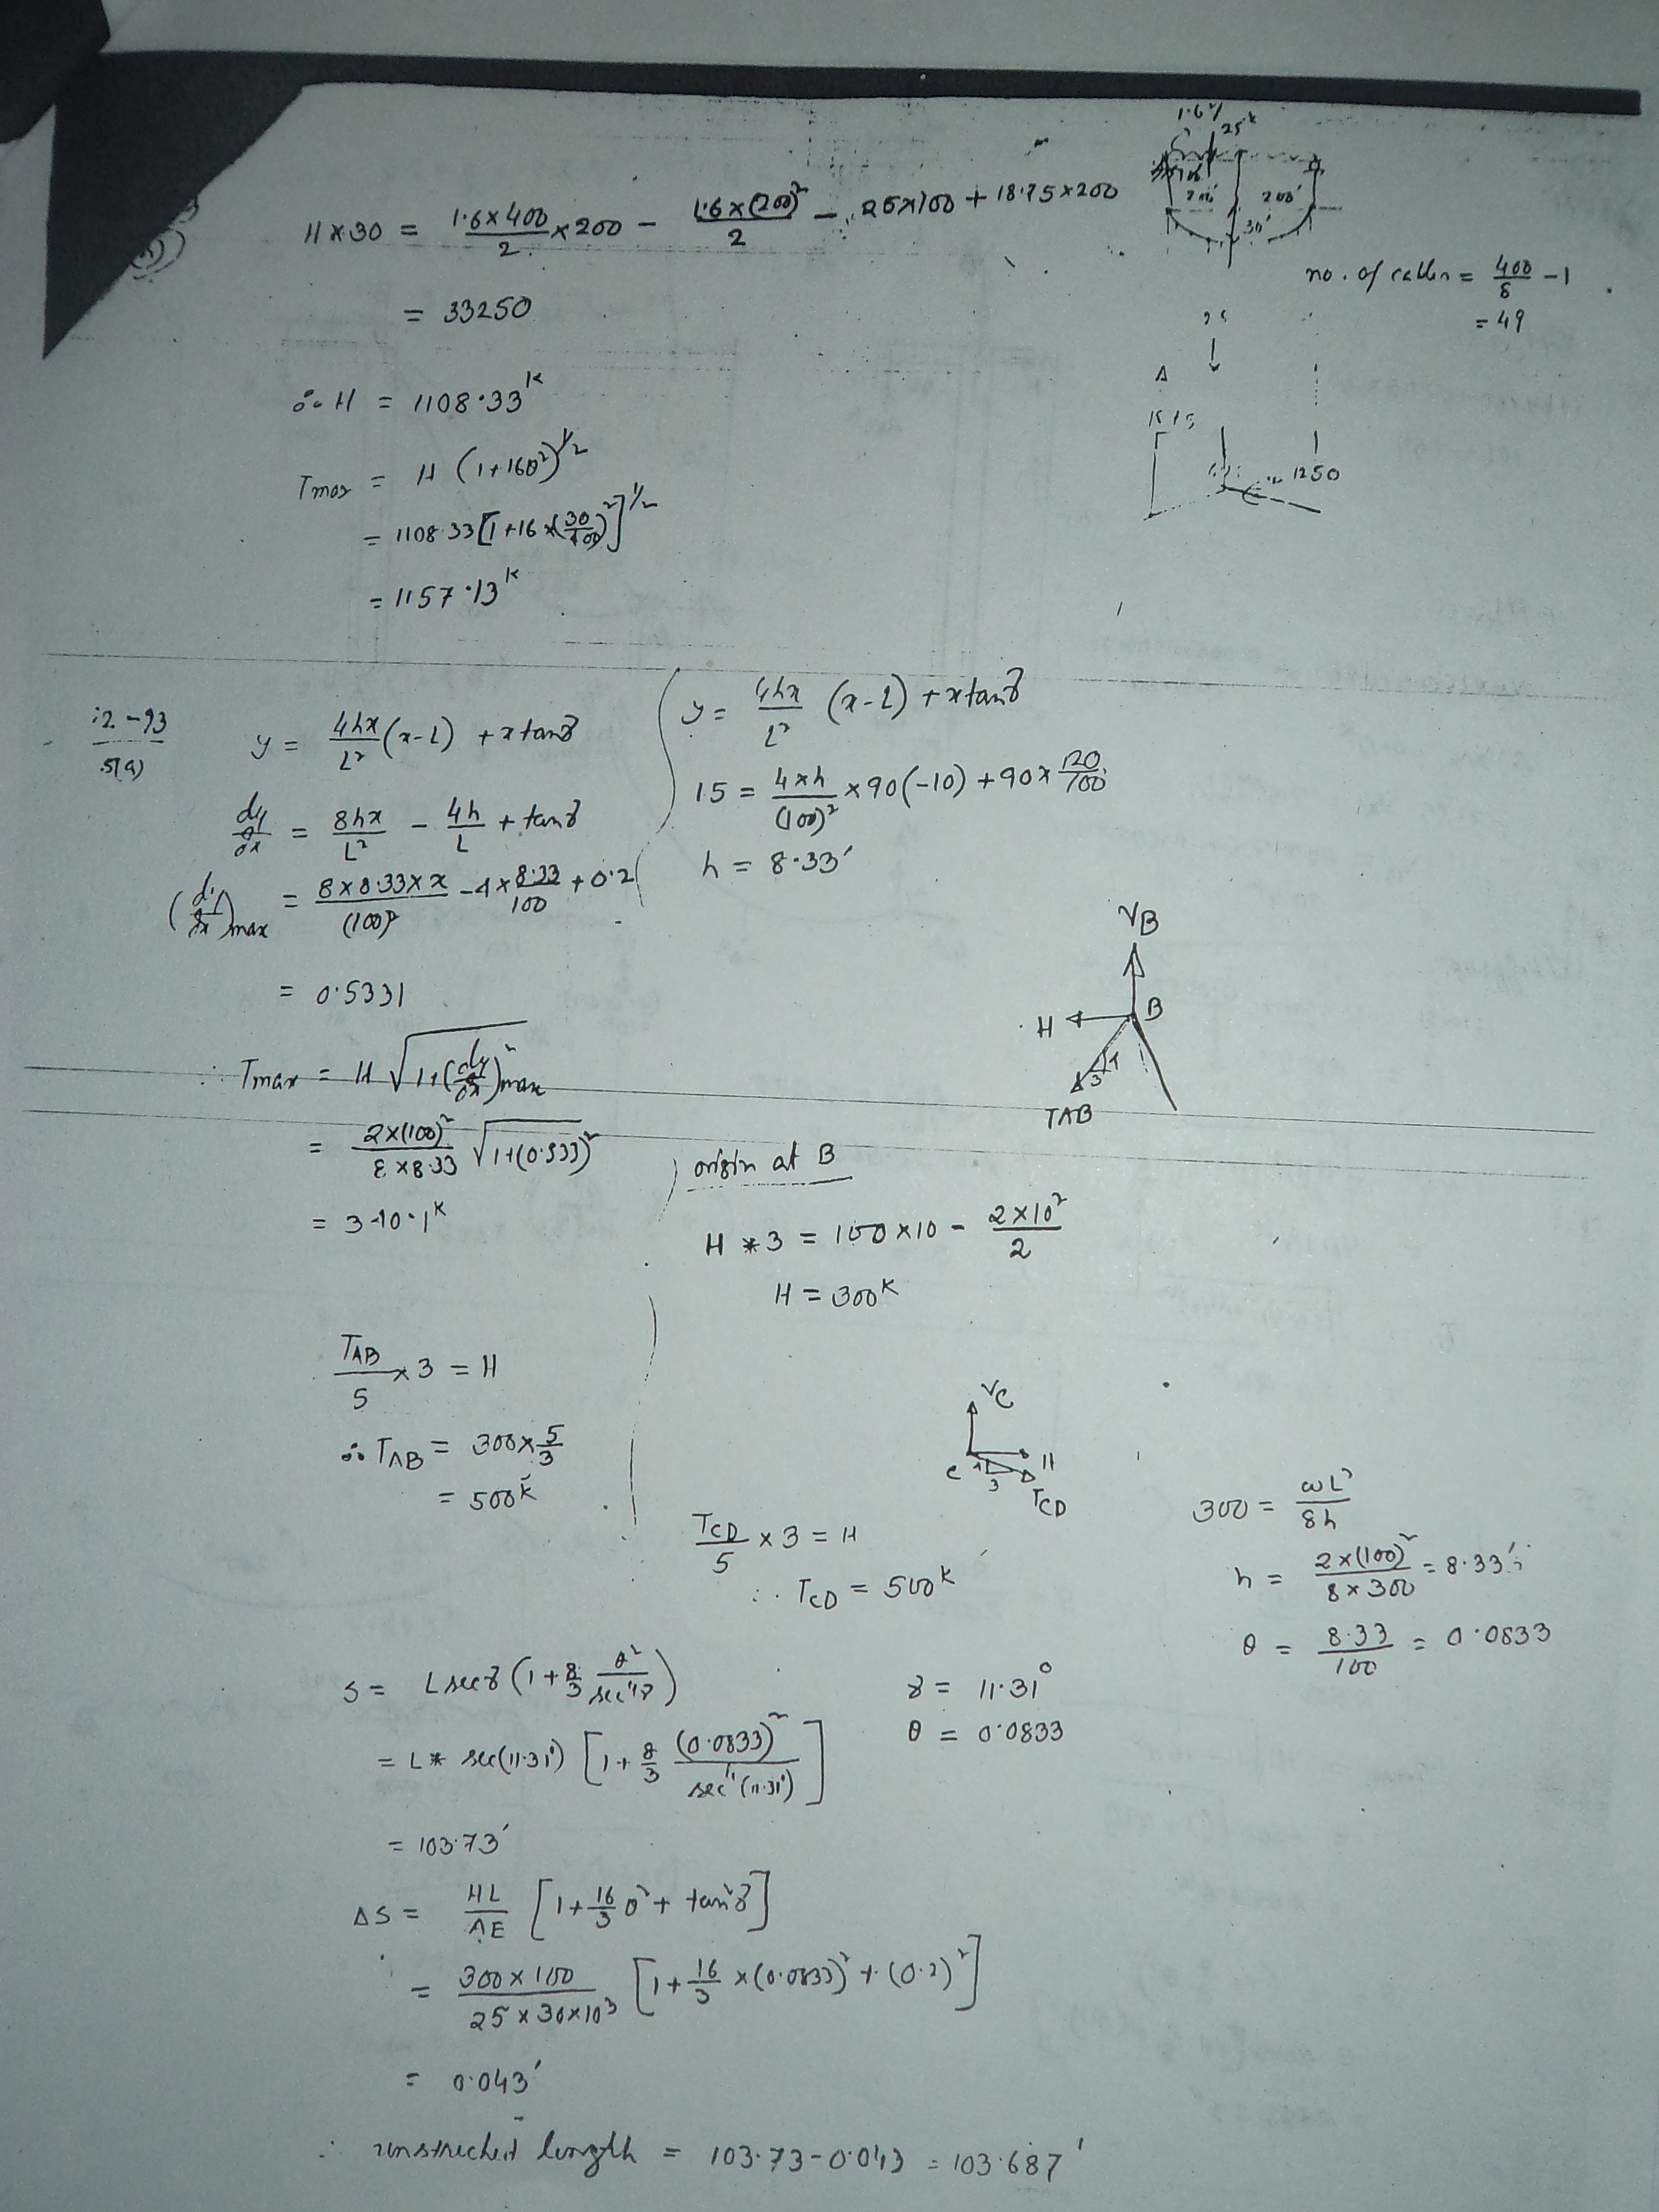 H×30 = 1.6×400/2 ×200 − 1.6×(200)²/2 − 25×100 + 18.75×200
= 33250
∴ H = 1108.33ᴷ
Tmax = H (1+16θ²)^½
= 1108.33[1+16×(30/400)²]^½
= 1157.13ᴷ
1.6ᴷ/
25ᴷ
200'
200'
30'
no. of cables = 400/8 − 1
= 49
A
1250
12-93
5(a)
y = 4hx/L² (x-L) + x tanγ
dy/dx = 8hx/L² − 4h/L + tanγ
(dy/dx)max = 8×8.33×x/(100)² − 4×8.33/100 + 0.2
= 0.5331
∴ Tmax = H √1+(dy/dx)²max
= 2×(100)²/8×8.33 √1+(0.533)²
= 340.1ᴷ
y = 4hx/L² (x-L) + x tanγ
15 = 4×h/(100)² ×90(-10) + 90× 20/100
h = 8.33'
VB
B
H
3
TAB
origin at B
H * 3 = 100×10 − 2×10²/2
H = 300ᴷ
TAB/5 ×3 = H
∴ TAB = 300× 5/3
= 500ᴷ
VC
C
H
3
TCD
TCD/5 × 3 = H
∴ TCD = 500ᴷ
300 = ωL²/8h
h = 2×(100)²/8×300 = 8.33'
θ = 8.33/100 = 0.0833
S = L secγ (1 + 8/3 θ²/sec⁴γ)
= L* sec(11.31°) [1 + 8/3 (0.0833)²/sec⁴(11.31°)]
= 103.73'
γ = 11.31°
θ = 0.0833
ΔS = HL/AE [1 + 16/3 θ² + tan²γ]
= 300×100/25×30×10³ [1 + 16/3 ×(0.0833)² + (0.2)²]
= 0.043'
∴ unstreched length = 103.73-0.043 = 103.687'